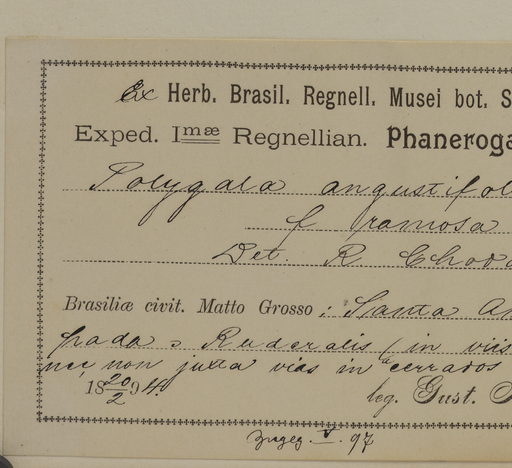 Ex Herb. Brasil. Regnell. Musei bot. S
Exped. Imæ Regnellian. Phaneroga
Polygala angustifol
f ramosa
Det. R. Chod
Brasiliæ civit. Matto Grosso: Santa An
pada: Ruderalis (in viis
nec non juxta vias in cerrados
18 20/2 94. leg. Gust.
V. 97